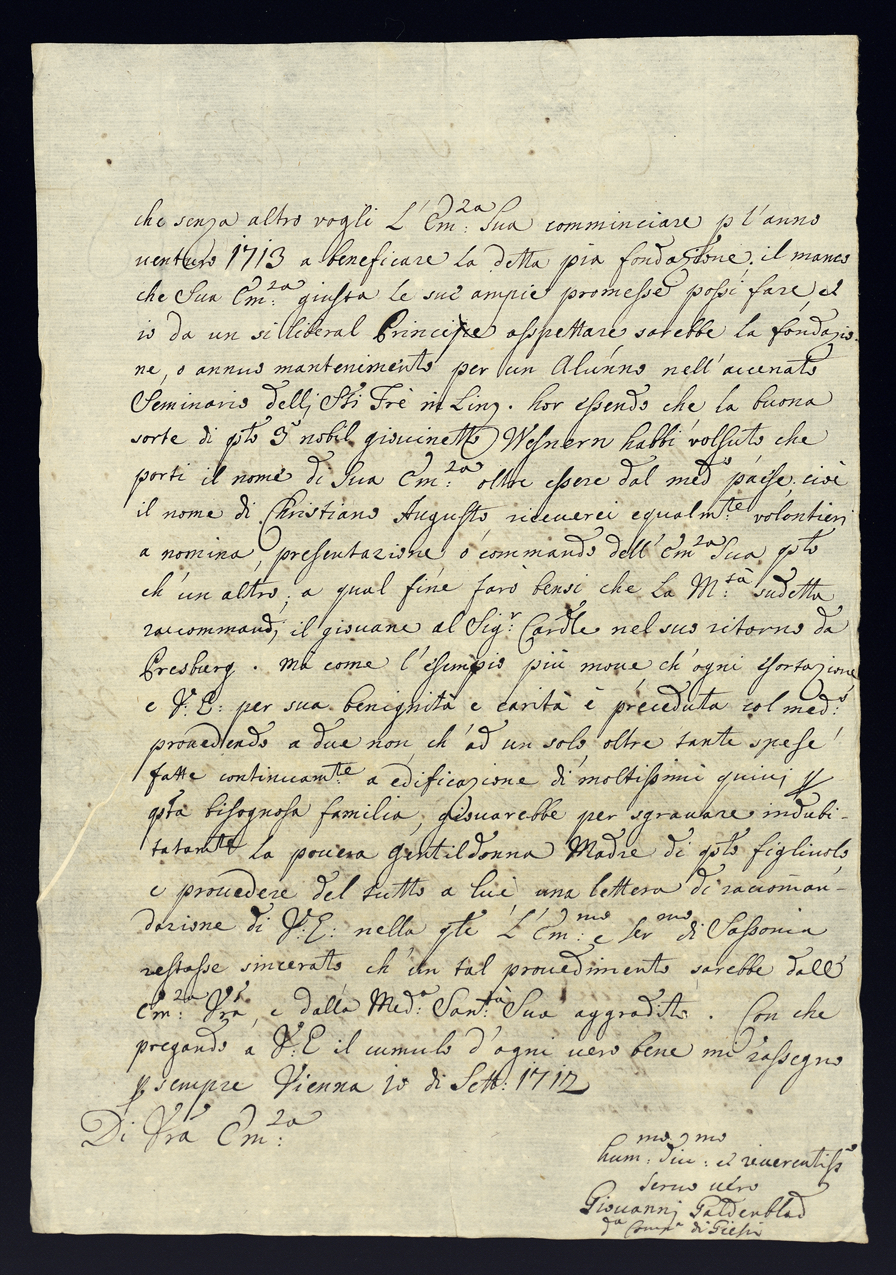 che senza altro vogli L'Em:2a Sua comminciare p l'anno
venturo 1713 a beneficare la detta pia fondazione. il manco
che Sua Em:2a giusta le sue ampie promesse possi fare, et
io da un si liberal Principe aspettare sarebbe la fondazio-
ne, o annuo mantenimento per un Alunno nell'accenato
Seminario delli Sti Frê in Linz. hor essendo che la buona
sorte di qsto 3º nobil giovinetto Wesnern habbi volsuto che
porti il nome di Sua Em:2a oltre essere dal medº paese. cioè
il nome di Christiano Augusto riceverei equalmte volontieri
a nomina, presentazione ò commando dell'Em:2a Sua qsto
ch'un altro; a qual fine farò bensi che La M:stà sudetta
raccommandi il giovane al Sigr Cardle nel suo ritorno da
Presburg. Ma come l'esempio più move ch'ogni esortazione
e V:E: per sua benignità e carità è preceduta col med:º
provedendo a due non ch'ad un solo oltre tante spese
fatte continuamte a edificazione di moltissimi quivi p
qsta bisognosa familia, giovarebbe per sgravare indubi-
tatamte la povera Gentildonna Madre di qsto figliuolo
e provedere del tutto a lui una lettera di raccoman-
dazione di V:E: nella qle L'Em:mo e Sermo di Sassonia
restasse sincerato ch'un tal provedimento sarebbe dall'
Em:2a Vrã, e dalla Med:a San:tà Sua aggradito. Con che
pregando a V:E il cumulo d'ogni vero bene mi rassegno
p sempre Vienna 10 di Sett: 1712
Di Vrã Em:2a
hum:mo Div:mo et reverentissº
servo vero
Giovanni Galdenblad
da Compa di Giesù